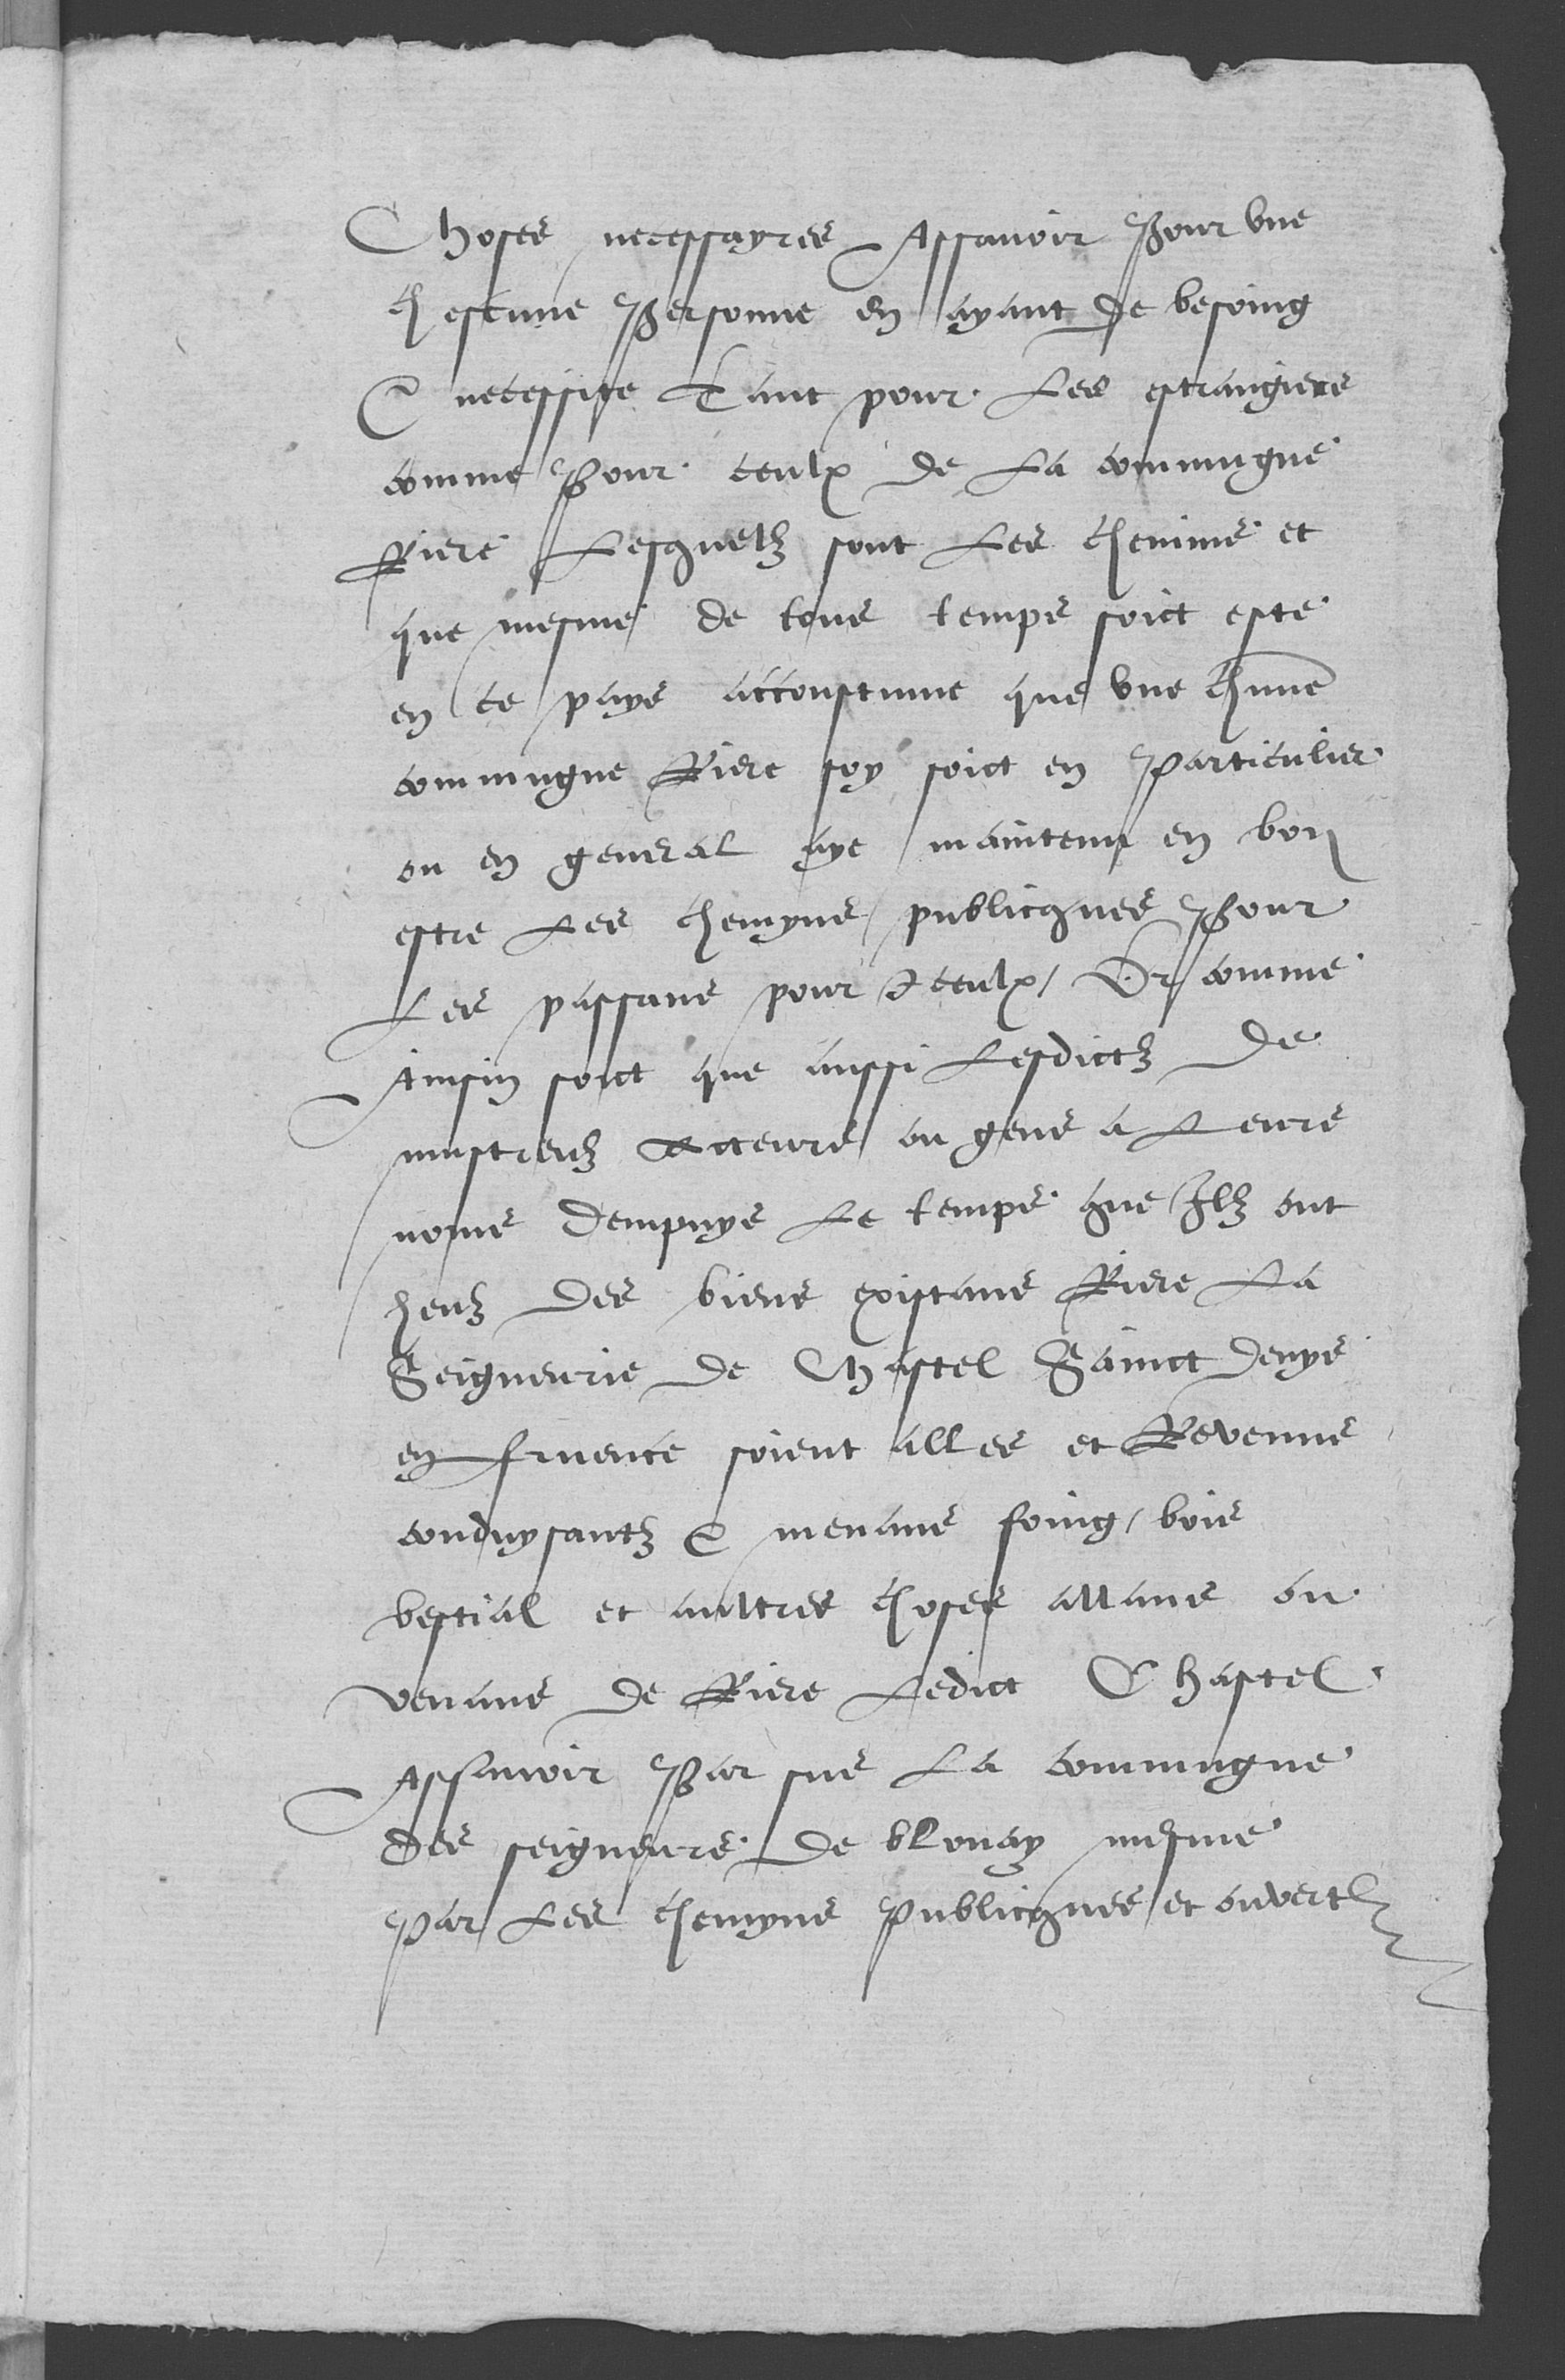 Choses necessayres Assavoir Pour une
chescune Personne en ayant de besoing
& necessite Tant pour Les estrangiers
comme Pour ceulx de La commugne
Riere Lesquelz sont Les chemins et
que mesme de tous temps soict este
en ce pays accoustume que une chune
commugne Riere soy soict en Particulier
ou en general aye maintenu en bon
estre Les chemyns publicques Pour
Les passans pour Iceulx / Or comme
Ainsin soict que aussi Lesdictz de
mustreulz acteurs ou gens a Leurs
noms dempuys Le temps que Ilz ont
heuz des biens existans Riere La
Seigneurie de Chastel Sainct Denys
en fruence soient alles et Revenus
conduysantz & menans foing / bois
bestial et aultres choses allans ou
venans de Riere Ledict Chastel
Assavoir Par sus La commugne
des seigneurs de blonay mesme
Par Les chemyns Publicques et ouvertz